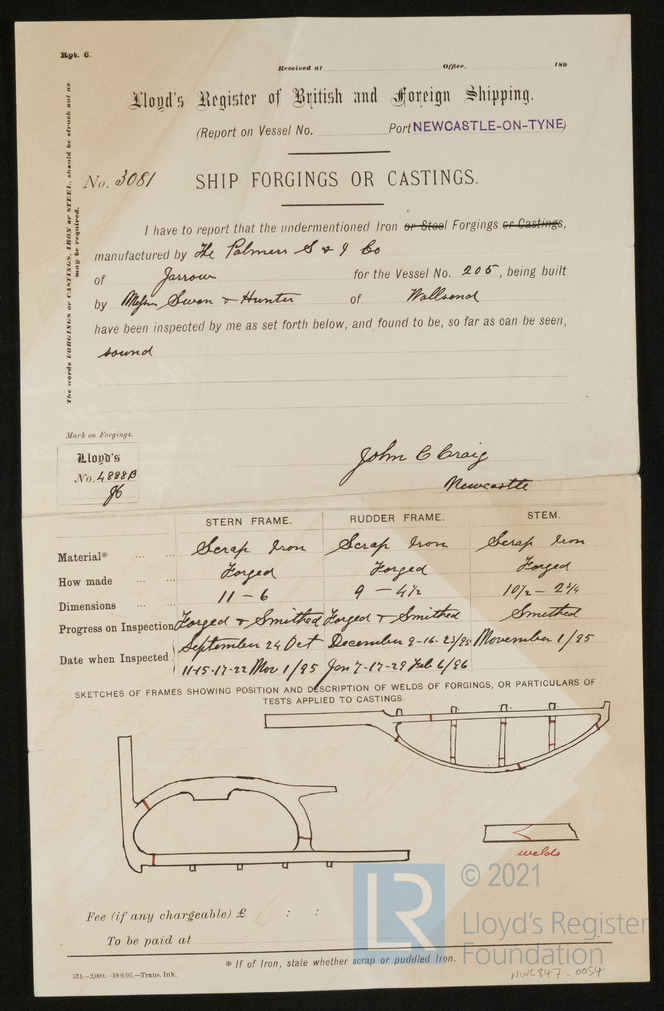 Rpt. 6.
Received at Office, 189
Lloyd's Register of British and Foreign Shipping.
(Report on Vessel No. Port NEWCASTLE-ON-TYNE)
No. 3081 SHIP FORGINGS OR CASTINGS.
The words FORGINGS or CASTINGS, IRON or STEEL, should be struck out as
may be required.
I have to report that the undermentioned Iron or Steel Forgings or Castings,
manufactured by The Palmers S & I Co
of Jarrow for the Vessel No. 205, being built
by Messrs Swan & Hunter of Wallsend
have been inspected by me as set forth below, and found to be, so far as can be seen,
sound
Mark on Forgings.
Lloyd's
No. 4888B
John C Craig
Newcastle
STERN FRAME. RUDDER FRAME. STEM.
Material* ... ... Scrap Iron Scrap Iron Scrap Iron
How made ... ... Forged Forged Forged
Dimensions ... ... 11 – 6 9 – 4½ 10½ – 2¾
Progress on Inspection Forged & Smithed Forged & Smithed Smithed
Date when Inspected September 24 Oct December 9-16-23/95 November 1/95
11-15-17-22 Nov 1/95 Jan 7-17-29 Feb 6/96
SKETCHES OF FRAMES SHOWING POSITION AND DESCRIPTION OF WELDS OF FORGINGS, OR PARTICULARS OF
TESTS APPLIED TO CASTINGS.
welds
Fee (if any chargeable) £ : :
To be paid at
* If of Iron, state whether scrap or puddled Iron.
551.—2,000.—10/6/95.—Trans. Ink.
NWC847-0054
LR
© 2021
Lloyd's Register
Foundation